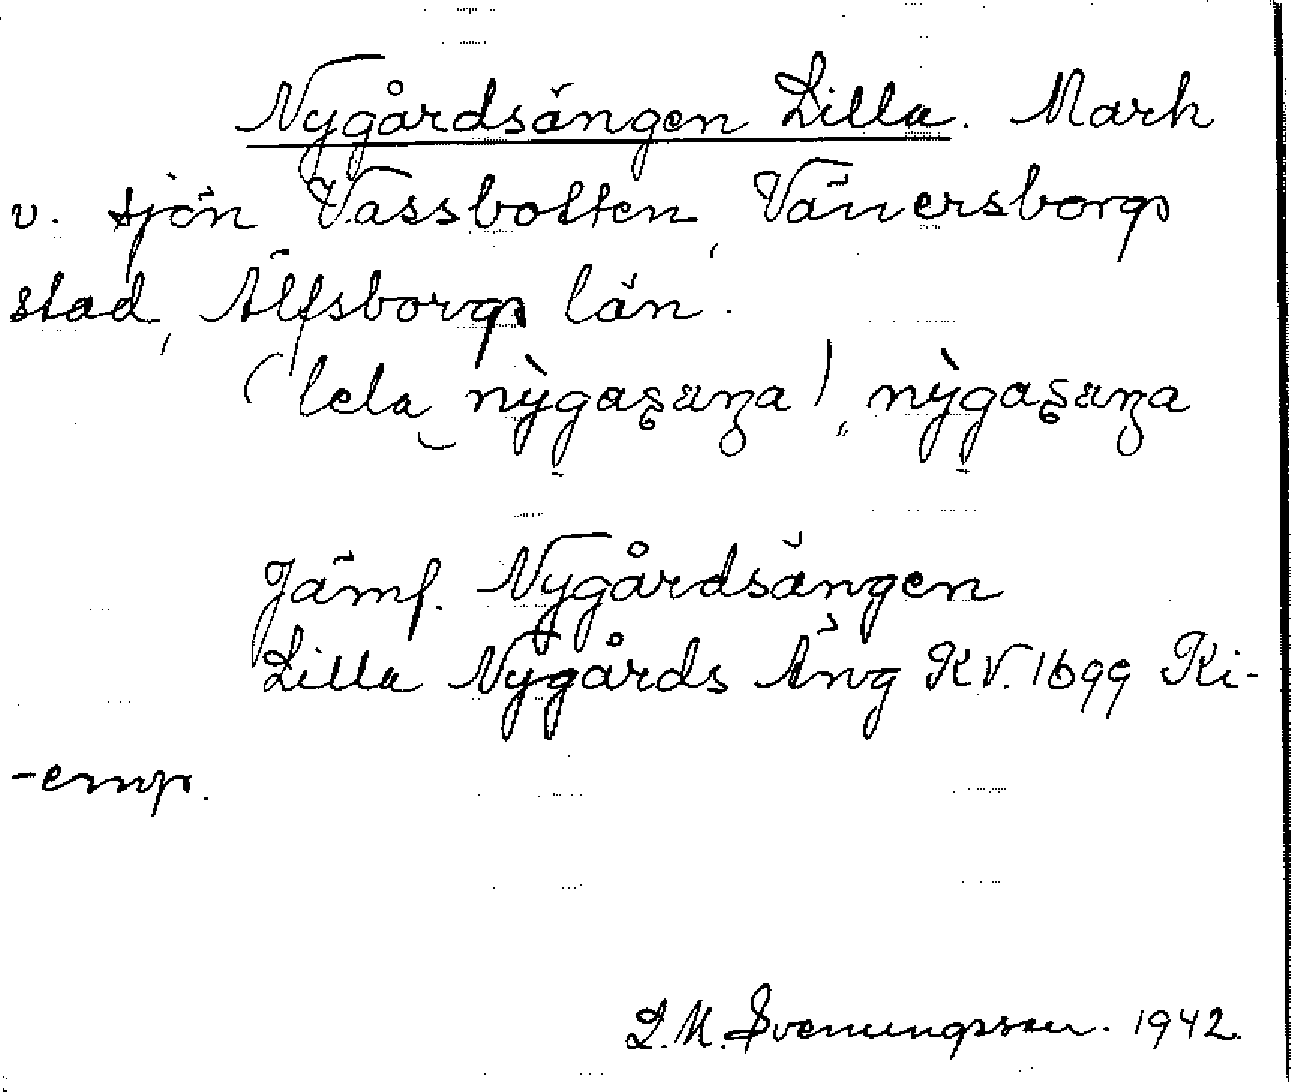 Nygårdsängen Lilla. Mark
v. sjön Vassbotten, Vänersborgs
stad, Älfsborgs län.
(lela nỳgaʂäŋa), nỳgaʂäŋa
Jämf. Nygårdsängen
Lilla Nygårds Äng KV. 1699 Ki-
-emp.
L.M. Svenungsson. 1942.